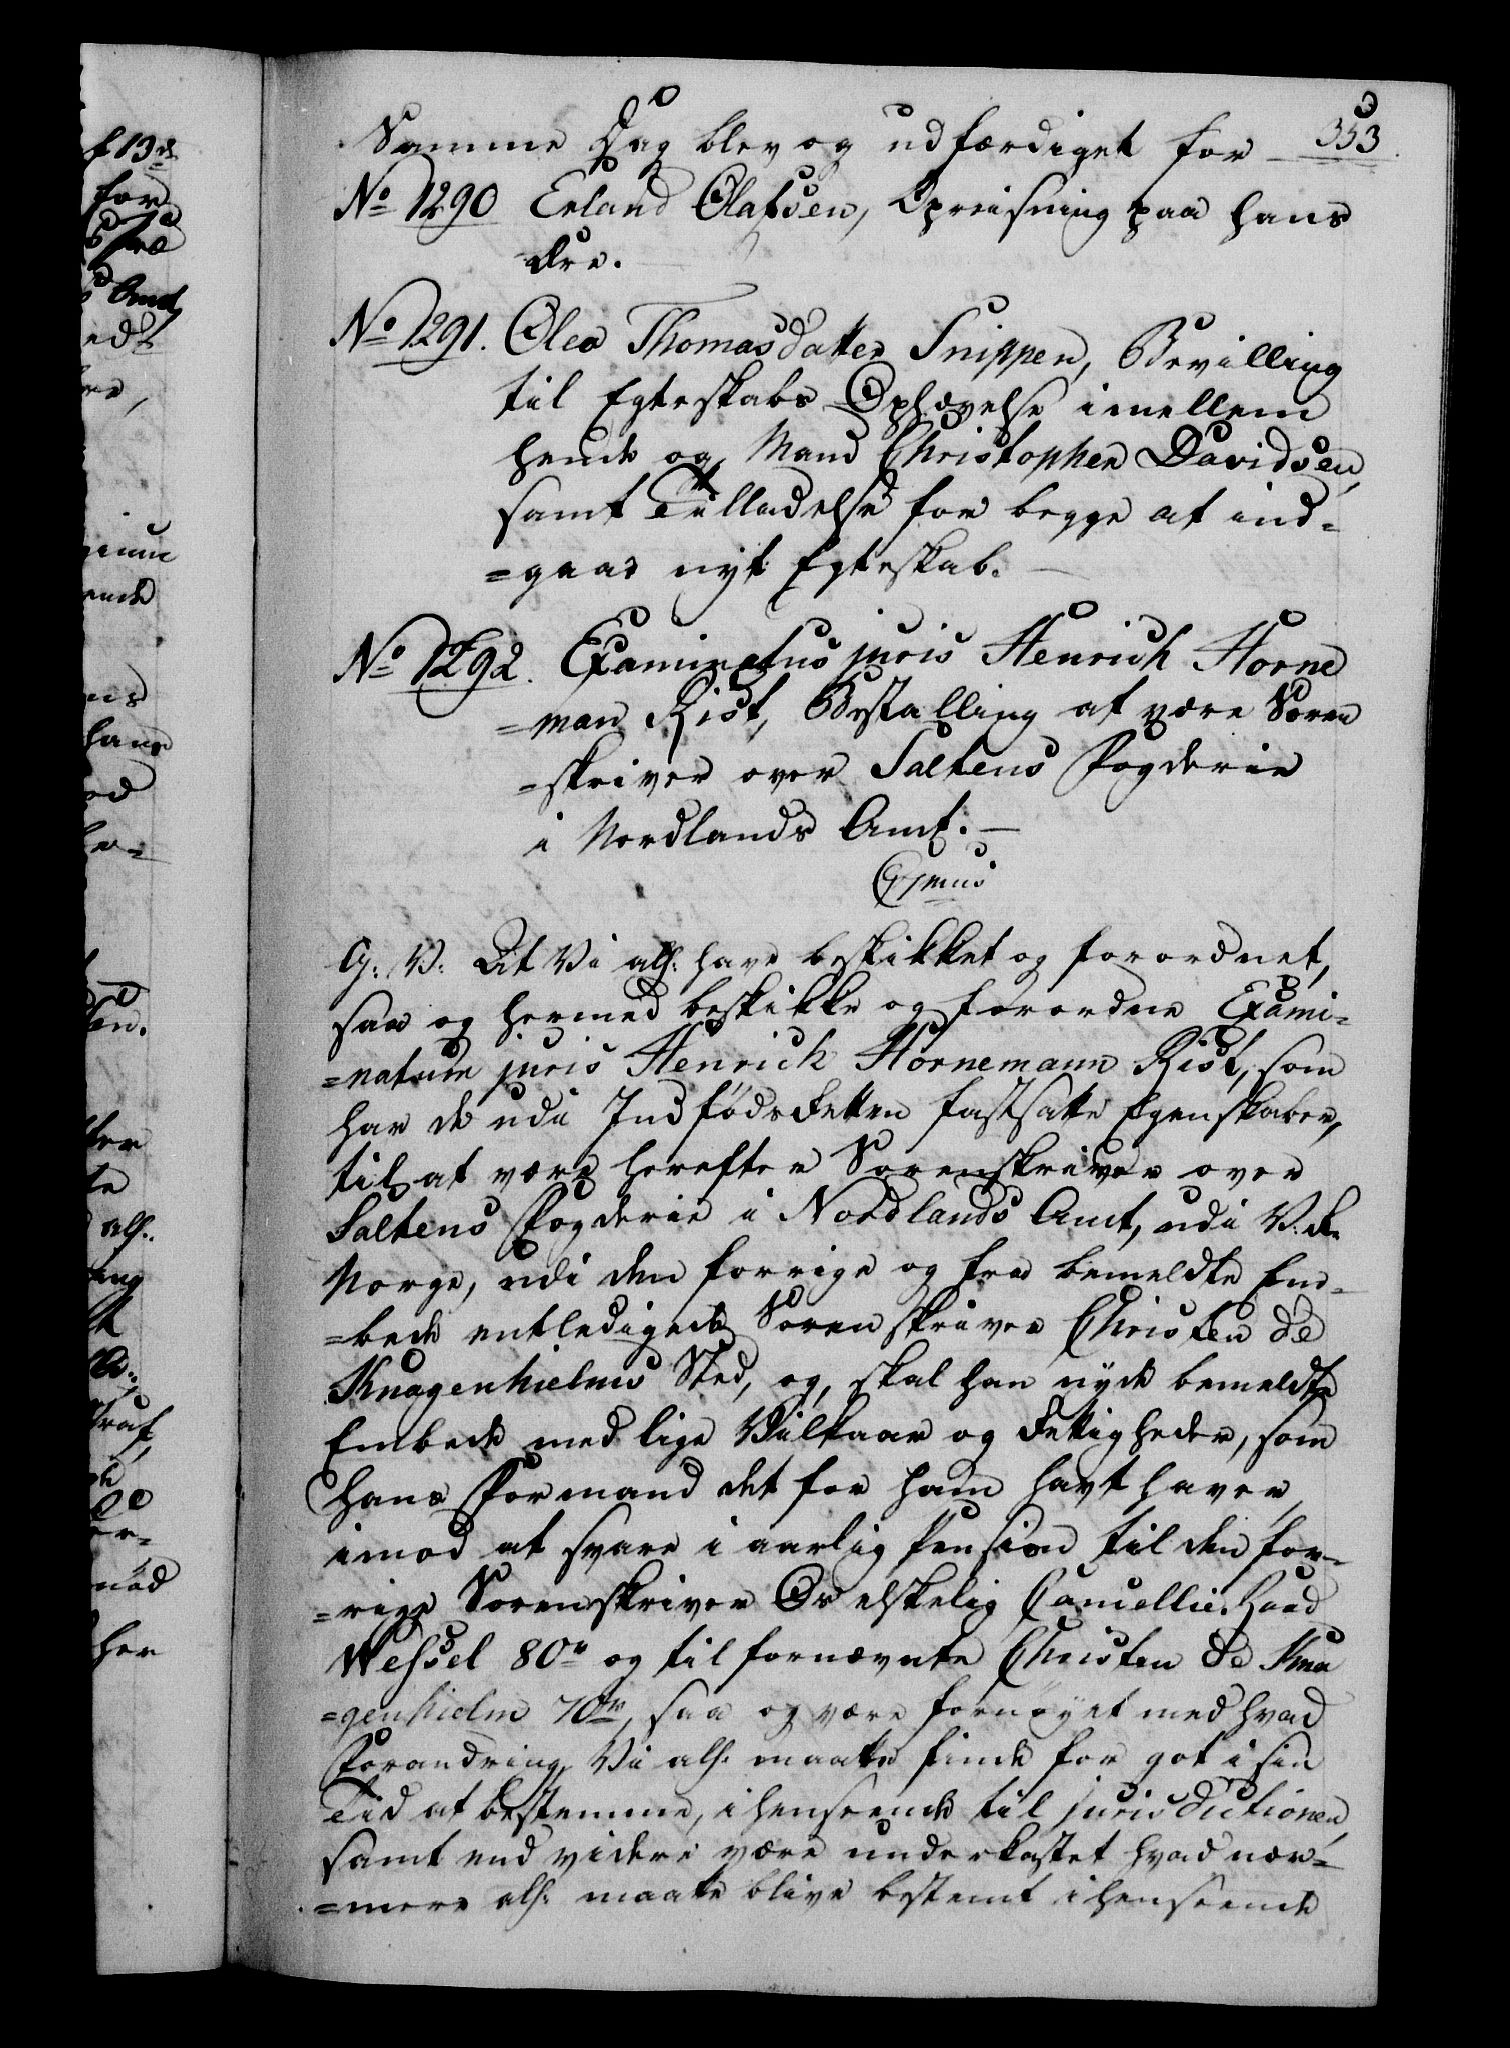 353
Samme Dag blev og udfærdiget for
No 1290 Erland Olafsen, Opreisning paa hans
Ære.
No 1291. Olea Thomasdatter Snippen, Bevilling
til Egteskabs Ophævelse imellem
hende og Mand Christopher Davidsen,
samt Tilladelse for begge at ind-
=gaae nyt Egteskab.
No 1292. Examinatus juris Henrich Horne
=man Rist, Bestalling at være Soren
=skriver over Saltens Fogderie
i Nordlands Amt.
G: V: At Vi alh: have beskikket og forordnet,
saa og hermed beskikke og forordne Exami-
=natum juris Henrich Hornemann Rist, som
har de udi Indfødsretten fastsatte Egenskaber,
til at være herefter Sorenskriver over
Saltens Fogderie i Nordlands Amt, udi V: R:
Norge, udi den forrige og fra bemeldte Em-
=bede entledigede Sorenskriver Christen de
Knagenhielms Sted, og skal han nyde bemeldte
Embede med lige Vilkaar og Rettigheder, som
hans Formand det for ham havt haver,
imod at svare i aarlig Pension til den for-
=rige Sorenskriver Os elskelig Cancellie-Raad
Wessel 80 r og til fornævnte Christen de Kna
=genhielm 70 r, saa og være fornøyet med hvad
Forandring Vi alh: maatte finde for got i sin
Tid at bestemme, i henseende til jurisdictionen,
samt end videre være underkastet hvad nær-
=mere alh: maatte blive bestemt i henseende